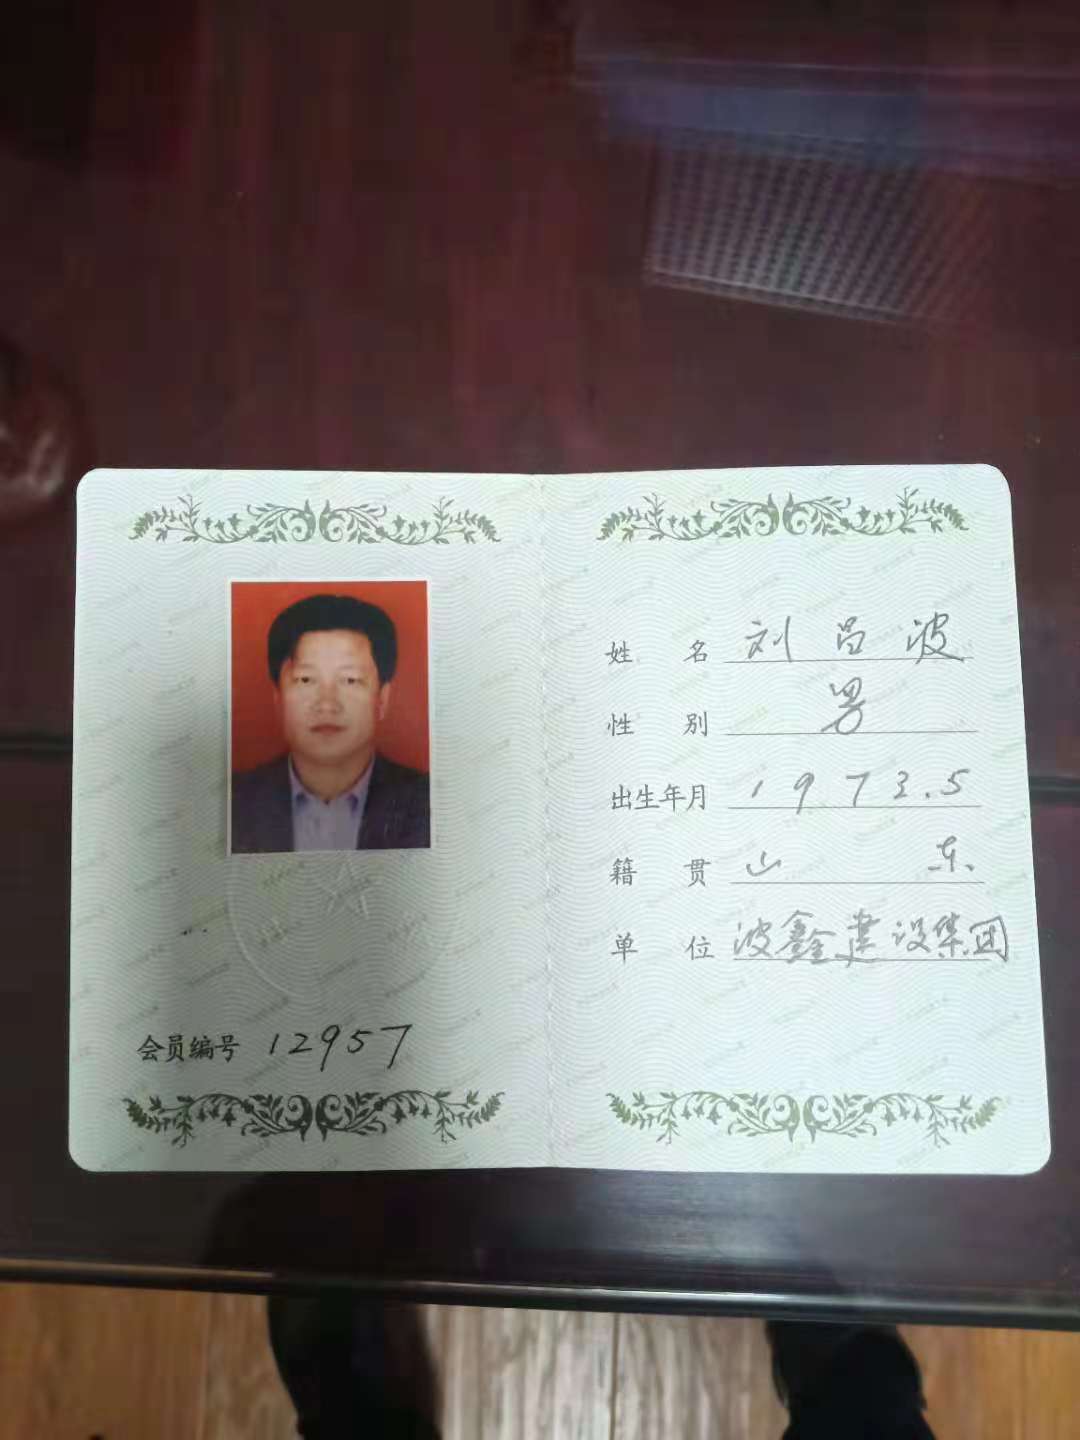 会员编号 12957
姓名 刘昌波
性别 男
出生年月 1973.5
籍贯 山东
单位 波鑫建设集团